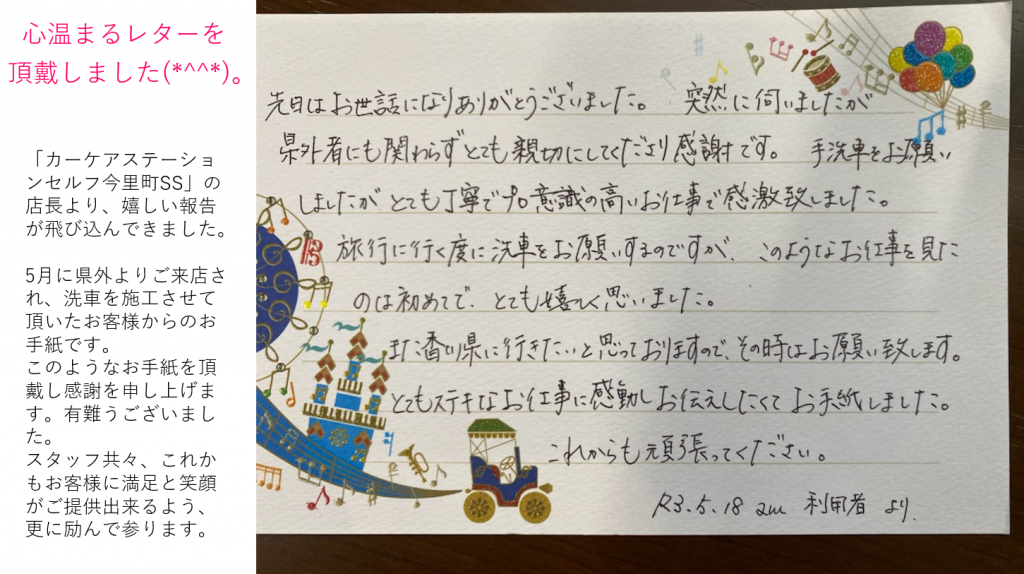 心温まるレターを
頂戴しました(*^^*)。
「カーケアステーショ
ンセルフ今里町SS」の
店長より、嬉しい報告
が飛び込んできました。
5月に県外よりご来店さ
れ、洗車を施工させて
頂いたお客様からのお
手紙です。
このようなお手紙を頂
戴し感謝を申し上げま
す。有難うございまし
た。
スタッフ共々、これか
もお客様に満足と笑顔
がご提供出来るよう、
更に励んで参ります。
先日はお世話になりありがとうございました。 突然に伺いましたが
県外者にも関わらずとても親切にしてくださり感謝です。 手洗車をお願い
しましたが とても丁寧でプロ意識の高いお仕事で感激致しました。
旅行に行く度に洗車をお願いするのですが、このようなお仕事を見た
のは初めてで、とても嬉しく思いました。
また香川県に行きたいと思っておりますので、その時はお願い致します。
とてもステキなお仕事に感動しお伝えしたくてお手紙しました。
これからも頑張ってください。
R3.5.18 am 利用者 より.